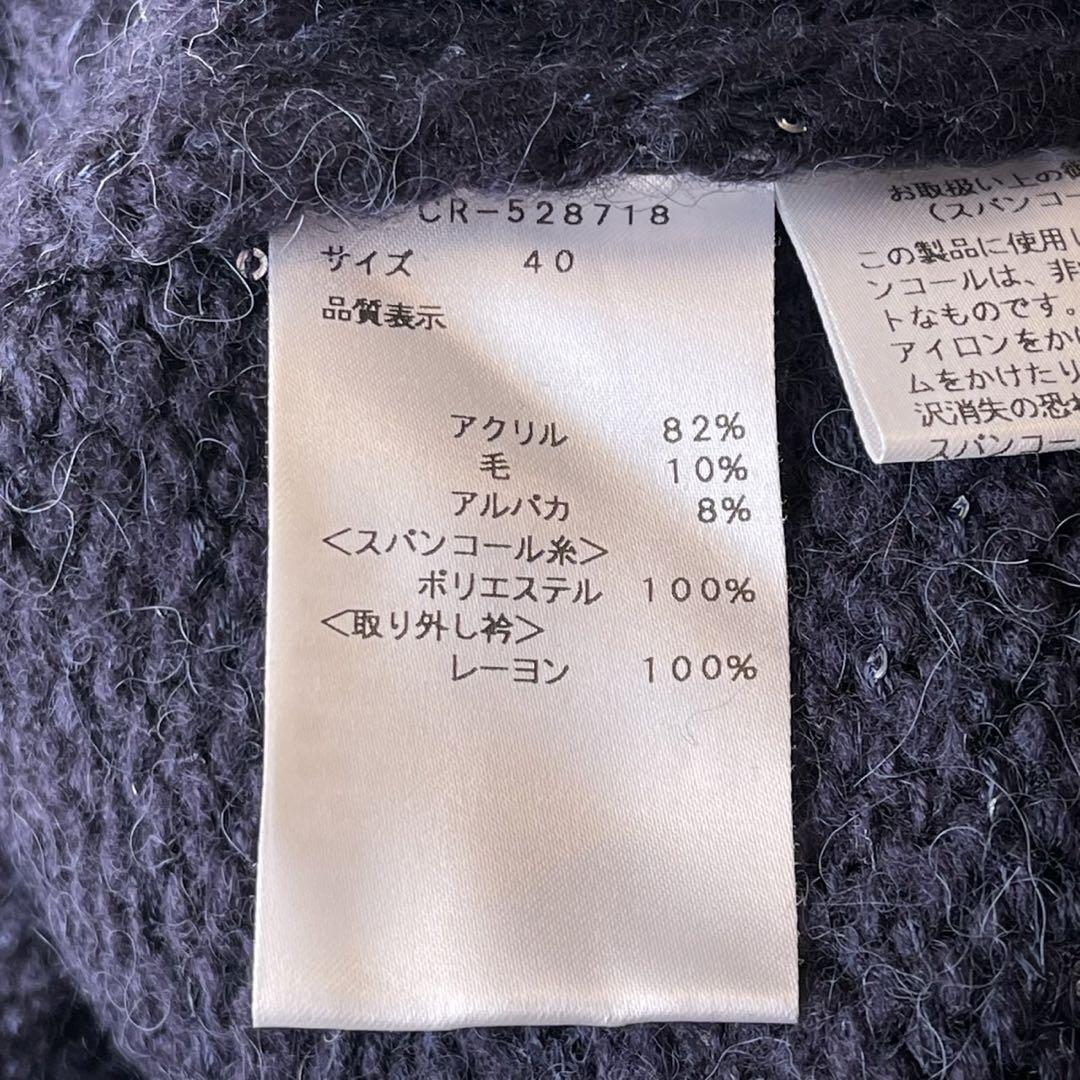 CR-528718
サイズ 40
品質表示
アクリル 82%
毛 10%
アルパカ 8%
<スパンコール糸>
ポリエステル 100%
<取り外し衿>
レーヨン 100%
お取扱い上の
(スパンコー
この製品に使用し
ンコールは、非
トなものです。
アイロンをか
ムをかけたり
沢消失の恐れ
スパンコー